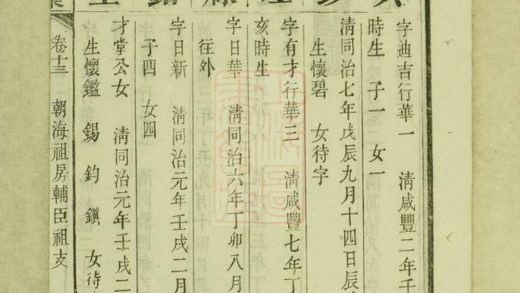 字迪吉行華一　清咸豐二年
時生　子一　女一
清同治七年戊辰九月十四日辰
生懷碧　女待字
字有才行華三　清咸豐七年丁
亥時生
字日華　清同治六年丁卯八月
往外
字日新　清同治元年壬戌二月
子四　女四
才堂公女　清同治元年壬戌二
生懷鑑　錫　鈞　鎮　女待
卷十三　朝海祖房輔臣祖支